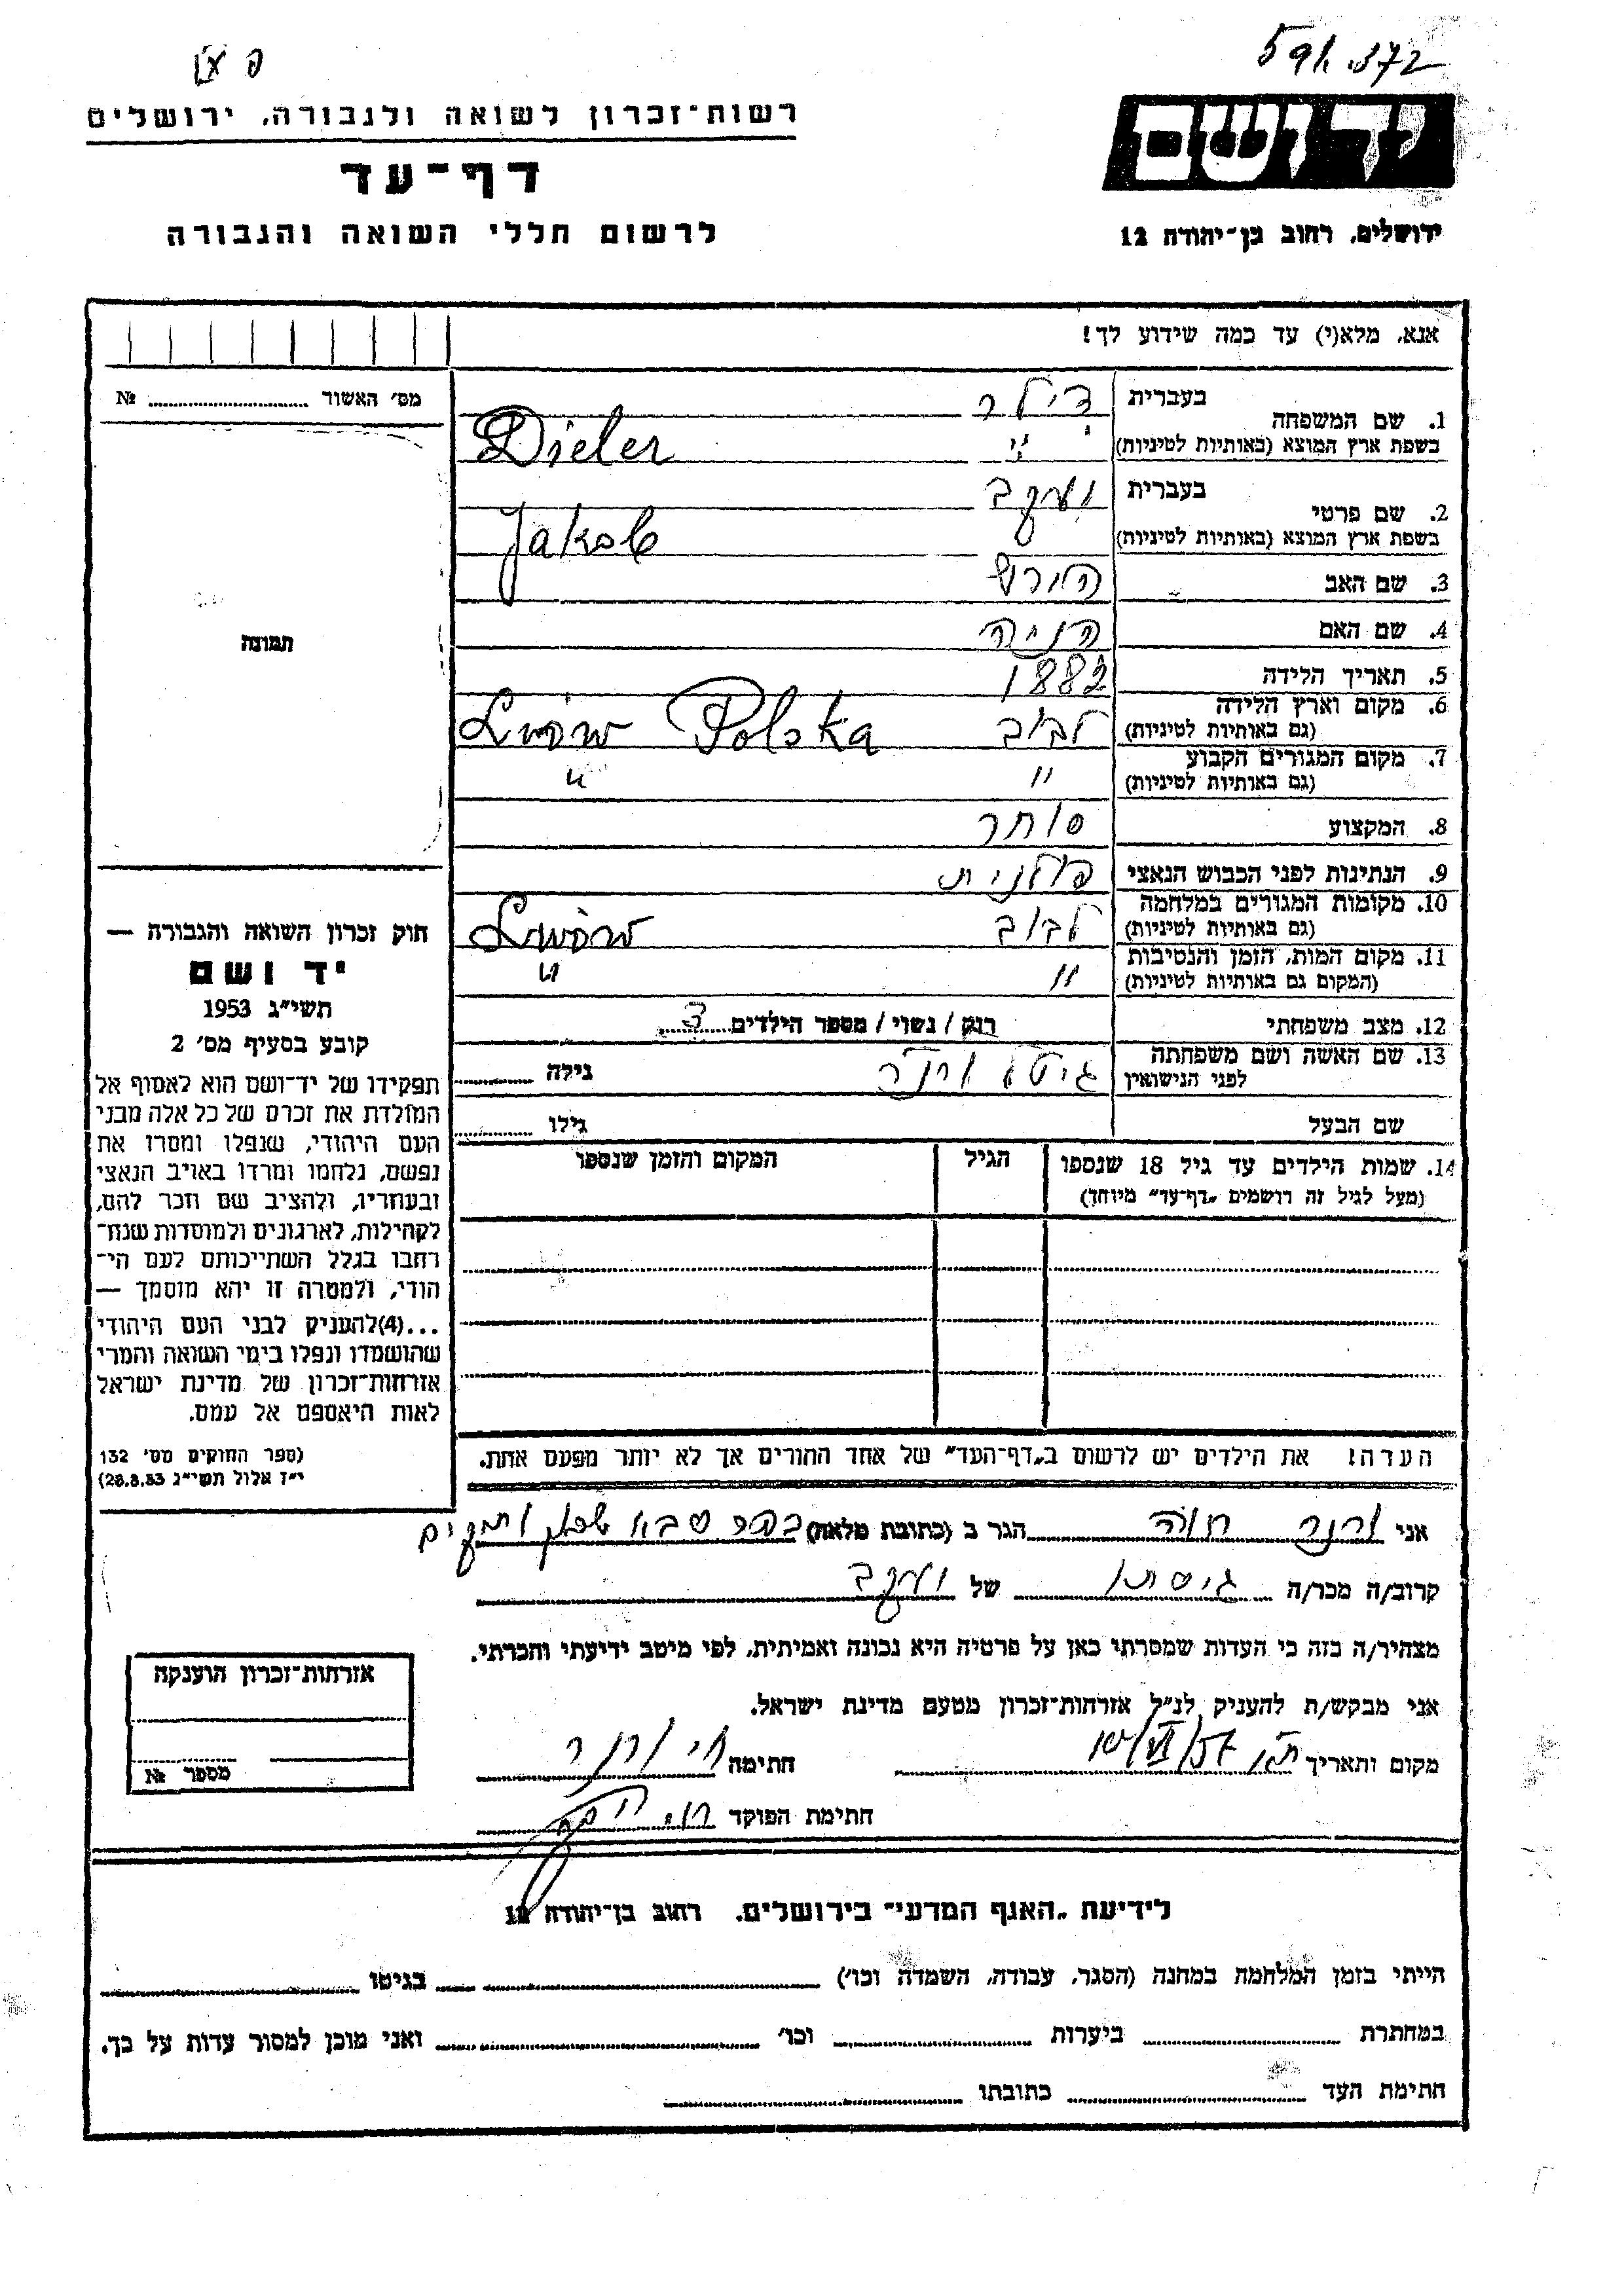 רשות־זכרון לשואה ולגבורה, ירושלים
דף־עד
לרשום חללי השואה והגבורה
יד ושם
ירושלים, רחוב בן־יהודה 12
אנא, מלא(י) עד כמה שידוע לך!
מס׳ האשור ........ №
תמונה
1. שם המשפחה בעברית דילר
בשפת ארץ המוצא (באותיות לטיניות) Dieler
2. שם פרטי בעברית יעקב
בשפת ארץ המוצא (באותיות לטיניות) Jakob
3. שם האב הירש
4. שם האם הניה
5. תאריך הלידה 1882
6. מקום וארץ הלידה לבוב
(גם באותיות לטיניות) Lwów Polska
7. מקום המגורים הקבוע
(גם באותיות לטיניות) " "
8. המקצוע סוחר
9. הנתינות לפני הכבוש הנאצי פולנית
10. מקומות המגורים במלחמה לבוב
(גם באותיות לטיניות) Lwów
11. מקום המות, הזמן והנסיבות
(המקום גם באותיות לטיניות) " "
12. מצב משפחתי רווק / נשוי / מספר הילדים 3
13. שם האשה ושם משפחתה גילה
לפני הנישואין
שם הבעל גילו
14. שמות הילדים עד גיל 18 שנספו הגיל המקום והזמן שנספו
(מעל לגיל זה רושמים „דף־עד" מיוחד)
חוק זכרון השואה והגבורה —
יד ושם
תשי"ג 1953
קובע בסעיף מס׳ 2
תפקידו של יד־ושם הוא לאסוף אל
המולדת את זכרם של כל אלה מבני
העם היהודי, שנפלו ומסרו את
נפשם, נלחמו ומרדו באויב הנאצי
ובעוזריו, ולהציב שם וזכר להם,
לקהילות, לארגונים ולמוסדות שנח־
רבו בגלל השתייכותם לעם הי־
הודי, ולמטרה זו יהא מוסמך —
...(4)להעניק לבני העם היהודי
שהושמדו ונפלו בימי השואה והמרי
אזרחות־זכרון של מדינת ישראל
לאות היאספם אל עמם.
(ספר החוקים מס׳ 132
י"ז אלול תשי"ג 28.8.53)
הערה! את הילדים יש לרשום ב„דף־העד" של אחד ההורים אך לא יותר מפעם אחת.
אני ורנר חוה הגר ב (כתובת מלאה) כפר סבא שכון ותיקים
קרוב/ה מכר/ה גיסתו של יעקב
מצהיר/ה בזה כי העדות שמסרתי כאן על פרטיה היא נכונה ואמיתית, לפי מיטב ידיעתי והכרתי.
אני מבקש/ת להעניק לנ"ל אזרחות־זכרון מטעם מדינת ישראל.
מקום ותאריך חתימה
חתימת הפוקד
אזרחות־זכרון הוענקה
מספר №
לידיעת „האגף המדעי" בירושלים, רחוב בן־יהודה 12
הייתי בזמן המלחמה במחנה (הסגר, עבודה, השמדה וכו׳) בגיטו
במחתרת ביערות וכו׳ ואני מוכן למסור עדות על כך.
חתימת העד כתובתו